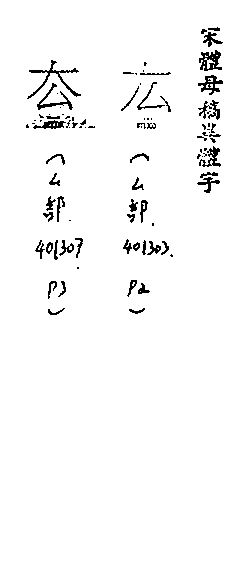 宋體母稿異體字
厷
（厶部.401303.
P2）
厺
（厶部.401307.
P3）